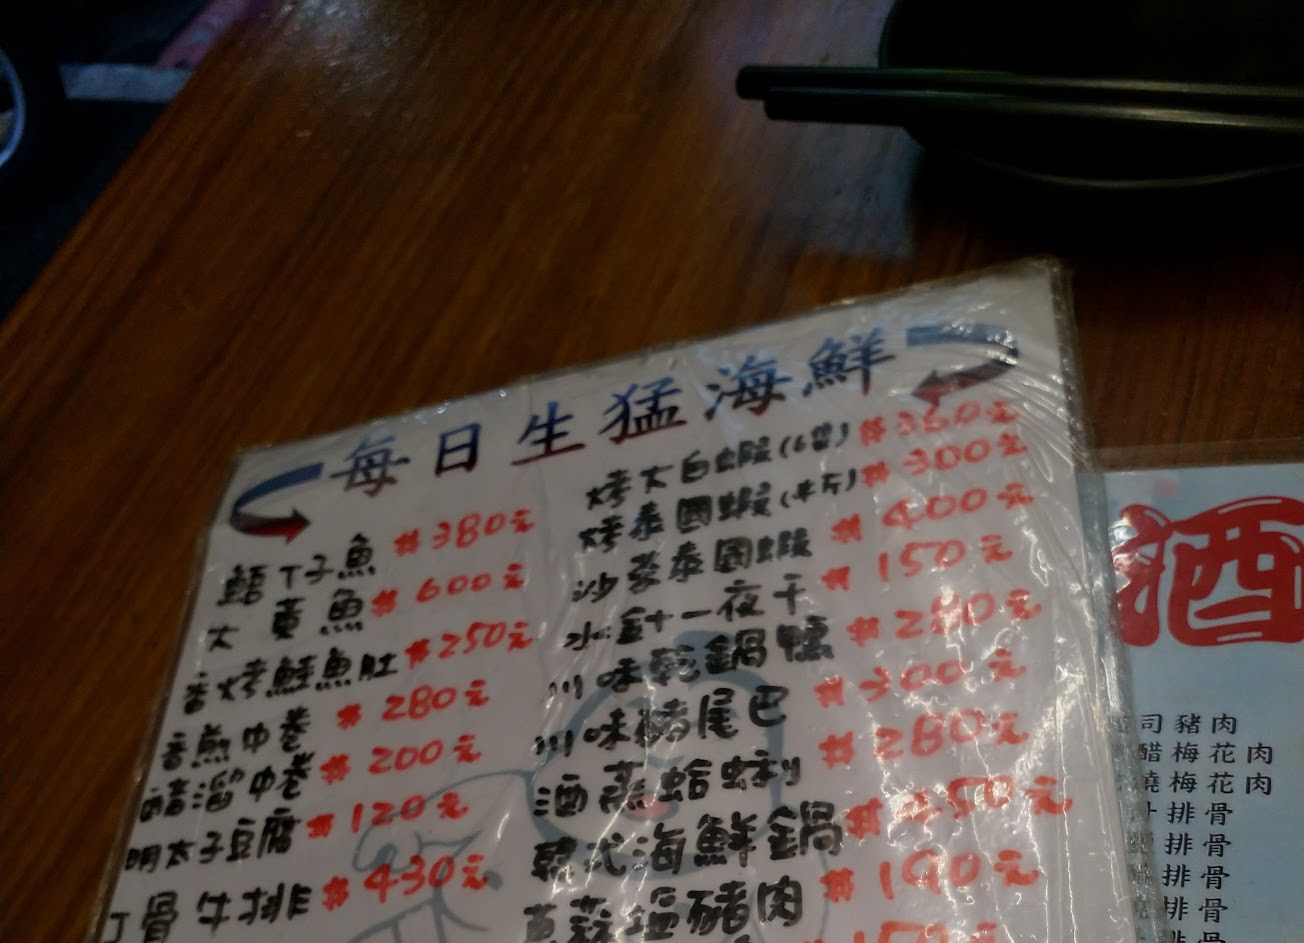 每日生猛海鮮
鱈丁子魚 #380元
大黃魚 #600元
香烤鮭魚肚 #250元
香煎中卷 #280元
醋溜中卷 #200元
明太子豆腐 #120元
丁骨牛排 #430元
烤大白蝦(6隻) #360元
烤泰國蝦(半斤) #300元
沙茶泰國蝦 #400元
水針一夜干 #150元
川味乾鍋鴨 #280元
川味豬尾巴 #300元
酒蒸蛤蜊 #280元
韓式海鮮鍋 #450元
蒜塩豬肉 #190元
酒
司豬肉
醋梅花肉
燒梅花肉
排骨
排骨
排骨
排骨
排骨